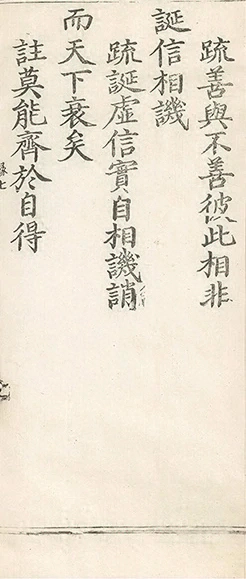 疏善與不善彼此相非
誕信相譏
疏誕虛信實自相譏誚
而天下衰矣
註莫能齊於自得